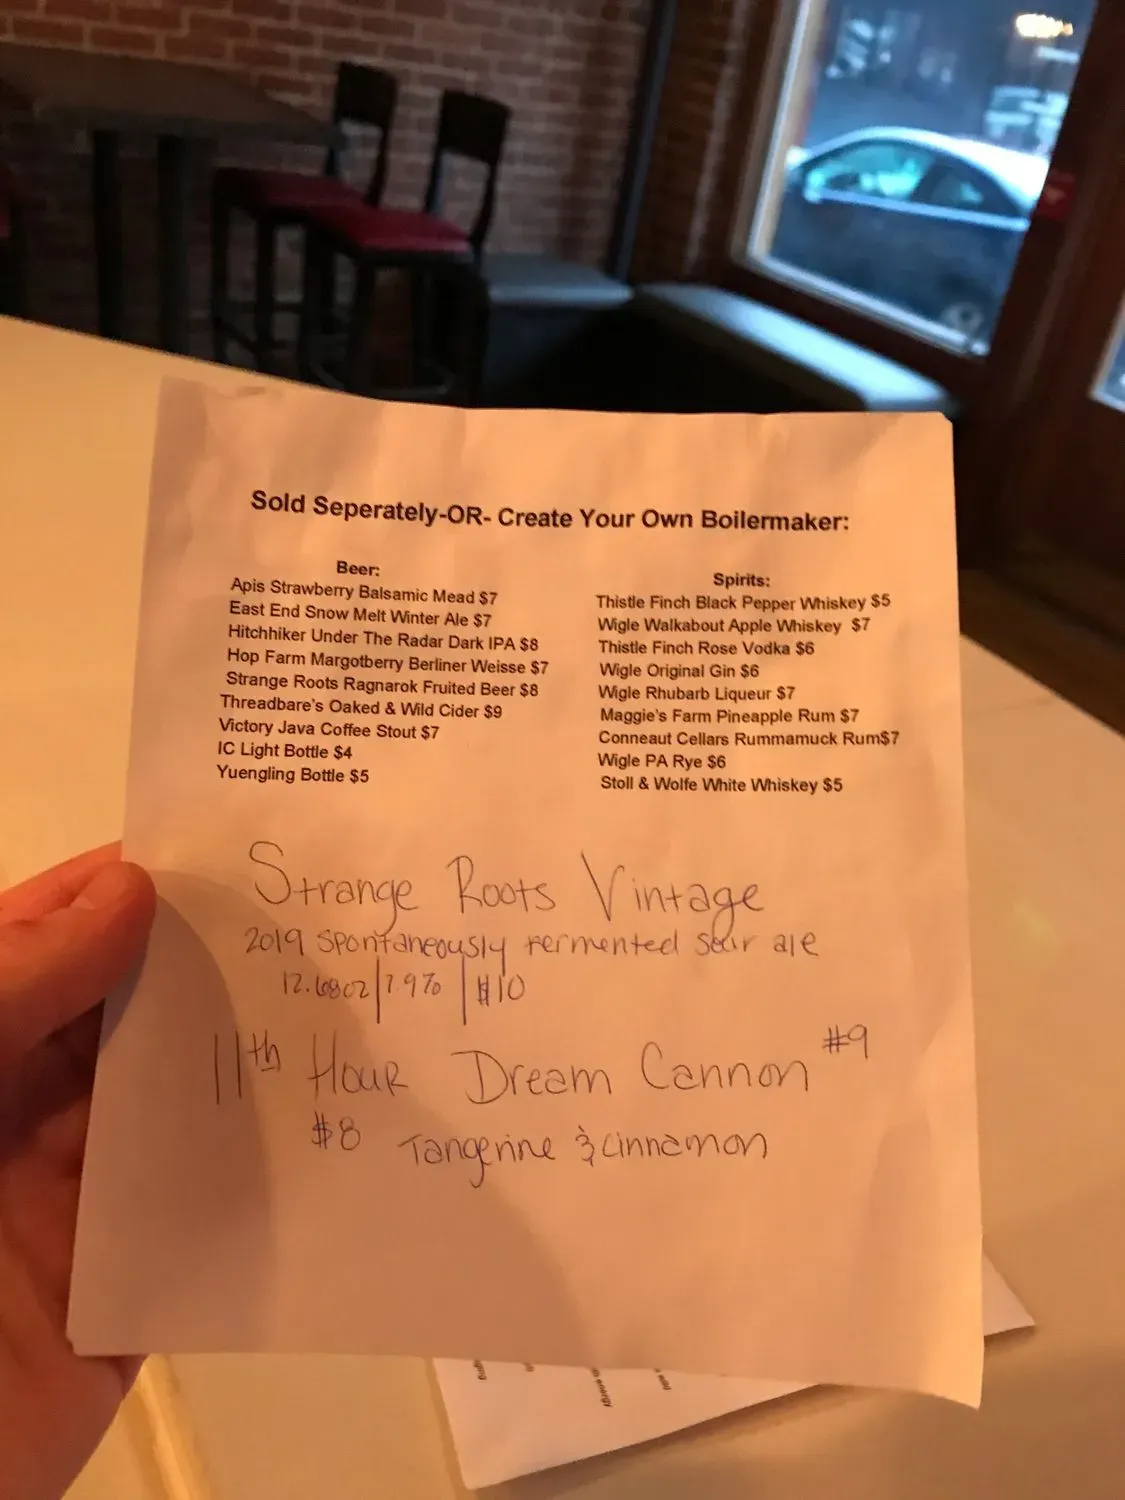 Sold Seperately-OR- Create Your Own Boilermaker:
Beer:
Apis Strawberry Balsamic Mead $7
East End Snow Melt Winter Ale $7
Hitchhiker Under The Radar Dark IPA $8
Hop Farm Margotberry Berliner Weisse $7
Strange Roots Ragnarok Fruited Beer $8
Threadbare's Oaked & Wild Cider $9
Victory Java Coffee Stout $7
IC Light Bottle $4
Yuengling Bottle $5
Spirits:
Thistle Finch Black Pepper Whiskey $5
Wigle Walkabout Apple Whiskey $7
Thistle Finch Rose Vodka $6
Wigle Original Gin $6
Wigle Rhubarb Liqueur $7
Maggie's Farm Pineapple Rum $7
Conneaut Cellars Rummamuck Rum$7
Wigle PA Rye $6
Stoll & Wolfe White Whiskey $5
Strange Roots Vintage
2019 spontaneously fermented sour ale
12.68oz|7.9%|$10
11th Hour Dream Cannon #9
$8 Tangerine & cinnamon